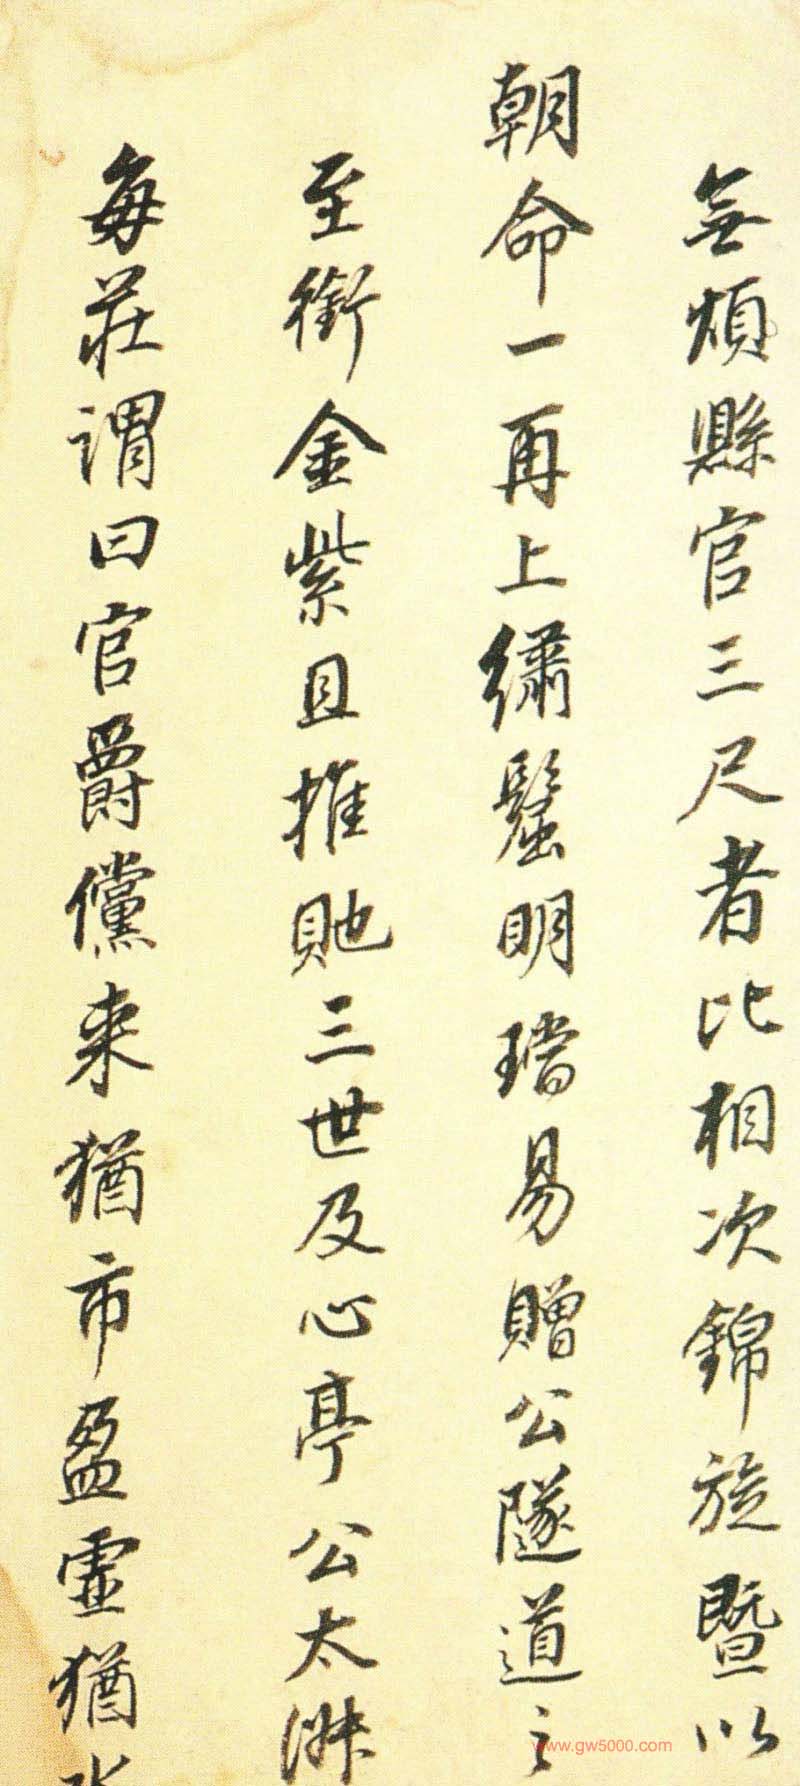 無煩縣官三尺者比相次錦旋暨以
朝命一再上繡鬛明璫易贈公隧道之
至銜金紫且推貤三世及心亭公太淋
每莊謂曰官爵儻来猶市盈虛猶
www.gw5000.com